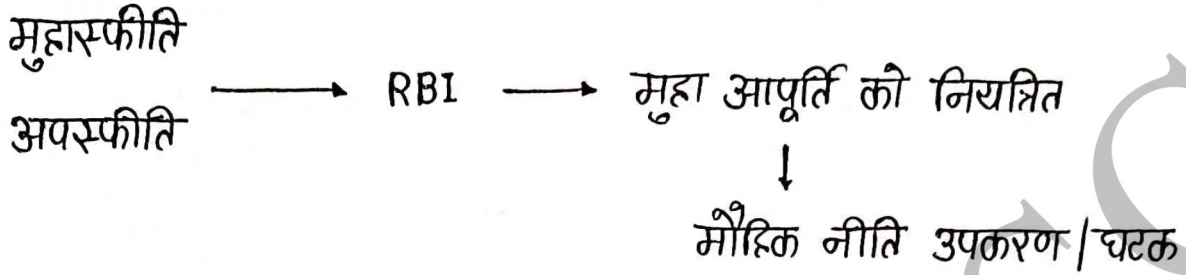 मुद्रास्फीति
अपस्फीति
→ RBI → मुद्रा आपूर्ति को नियत्रित
↓
मौद्रिक नीति उपकरण / घटक